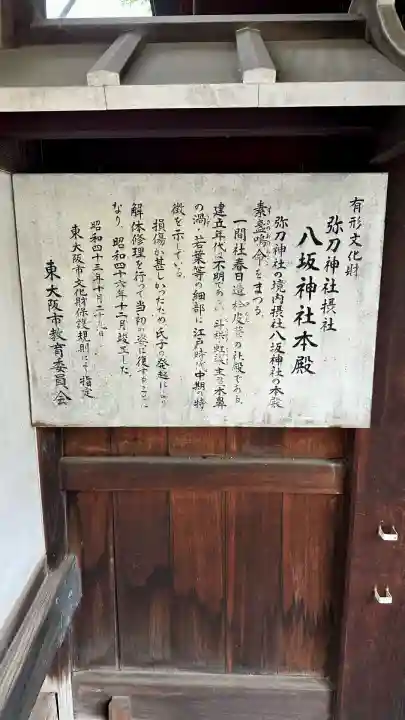 有形文化財
弥刀神社摂社
八坂神社本殿
弥刀神社の境内摂社八坂神社の本殿
素盞嗚命をまつる。
一間社春日造 桧皮葺の社殿である。
建立年代は不明であるが 斗栱 虹梁 木鼻
の渦、若葉等の細部に江戸時代中期の特
徴を示している。
損傷が甚しかったため氏子の発起により
解体修理を行って当初の姿に復することに
なり 昭和四十六年十二月竣工した。
昭和四十三年十月二十九日
東大阪市文化財保護規則にて指定
東大阪市教育委員会